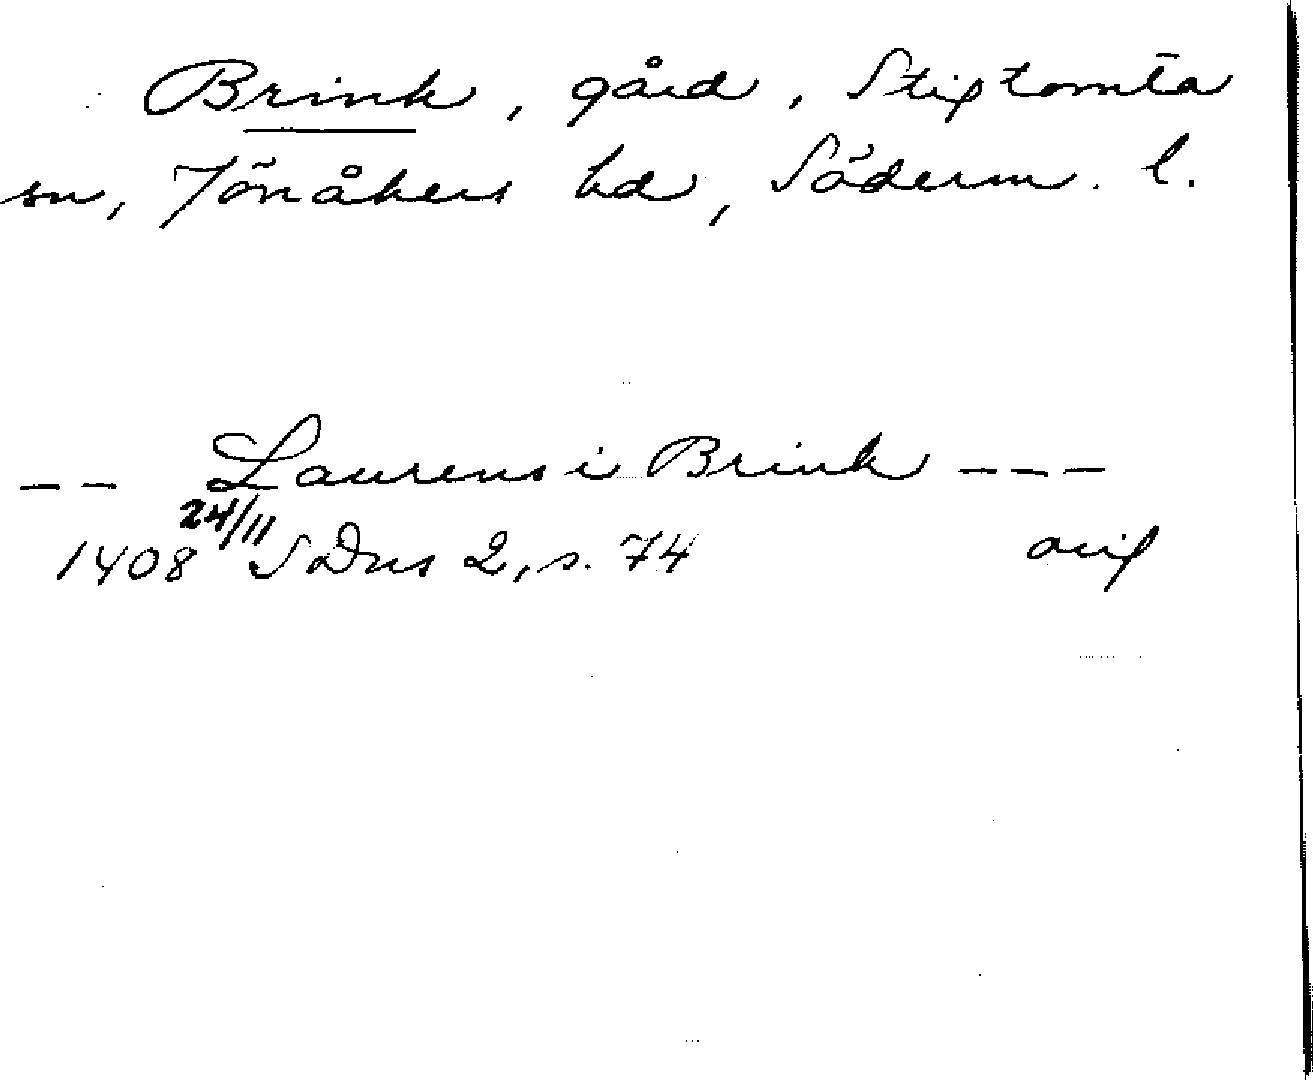 Brink, gård, Stigtomta
sn, Jönåkers hd, Söderm. l.
-- Laurens i Brink ---
1408 24/11 SDns 2, s. 74 orig